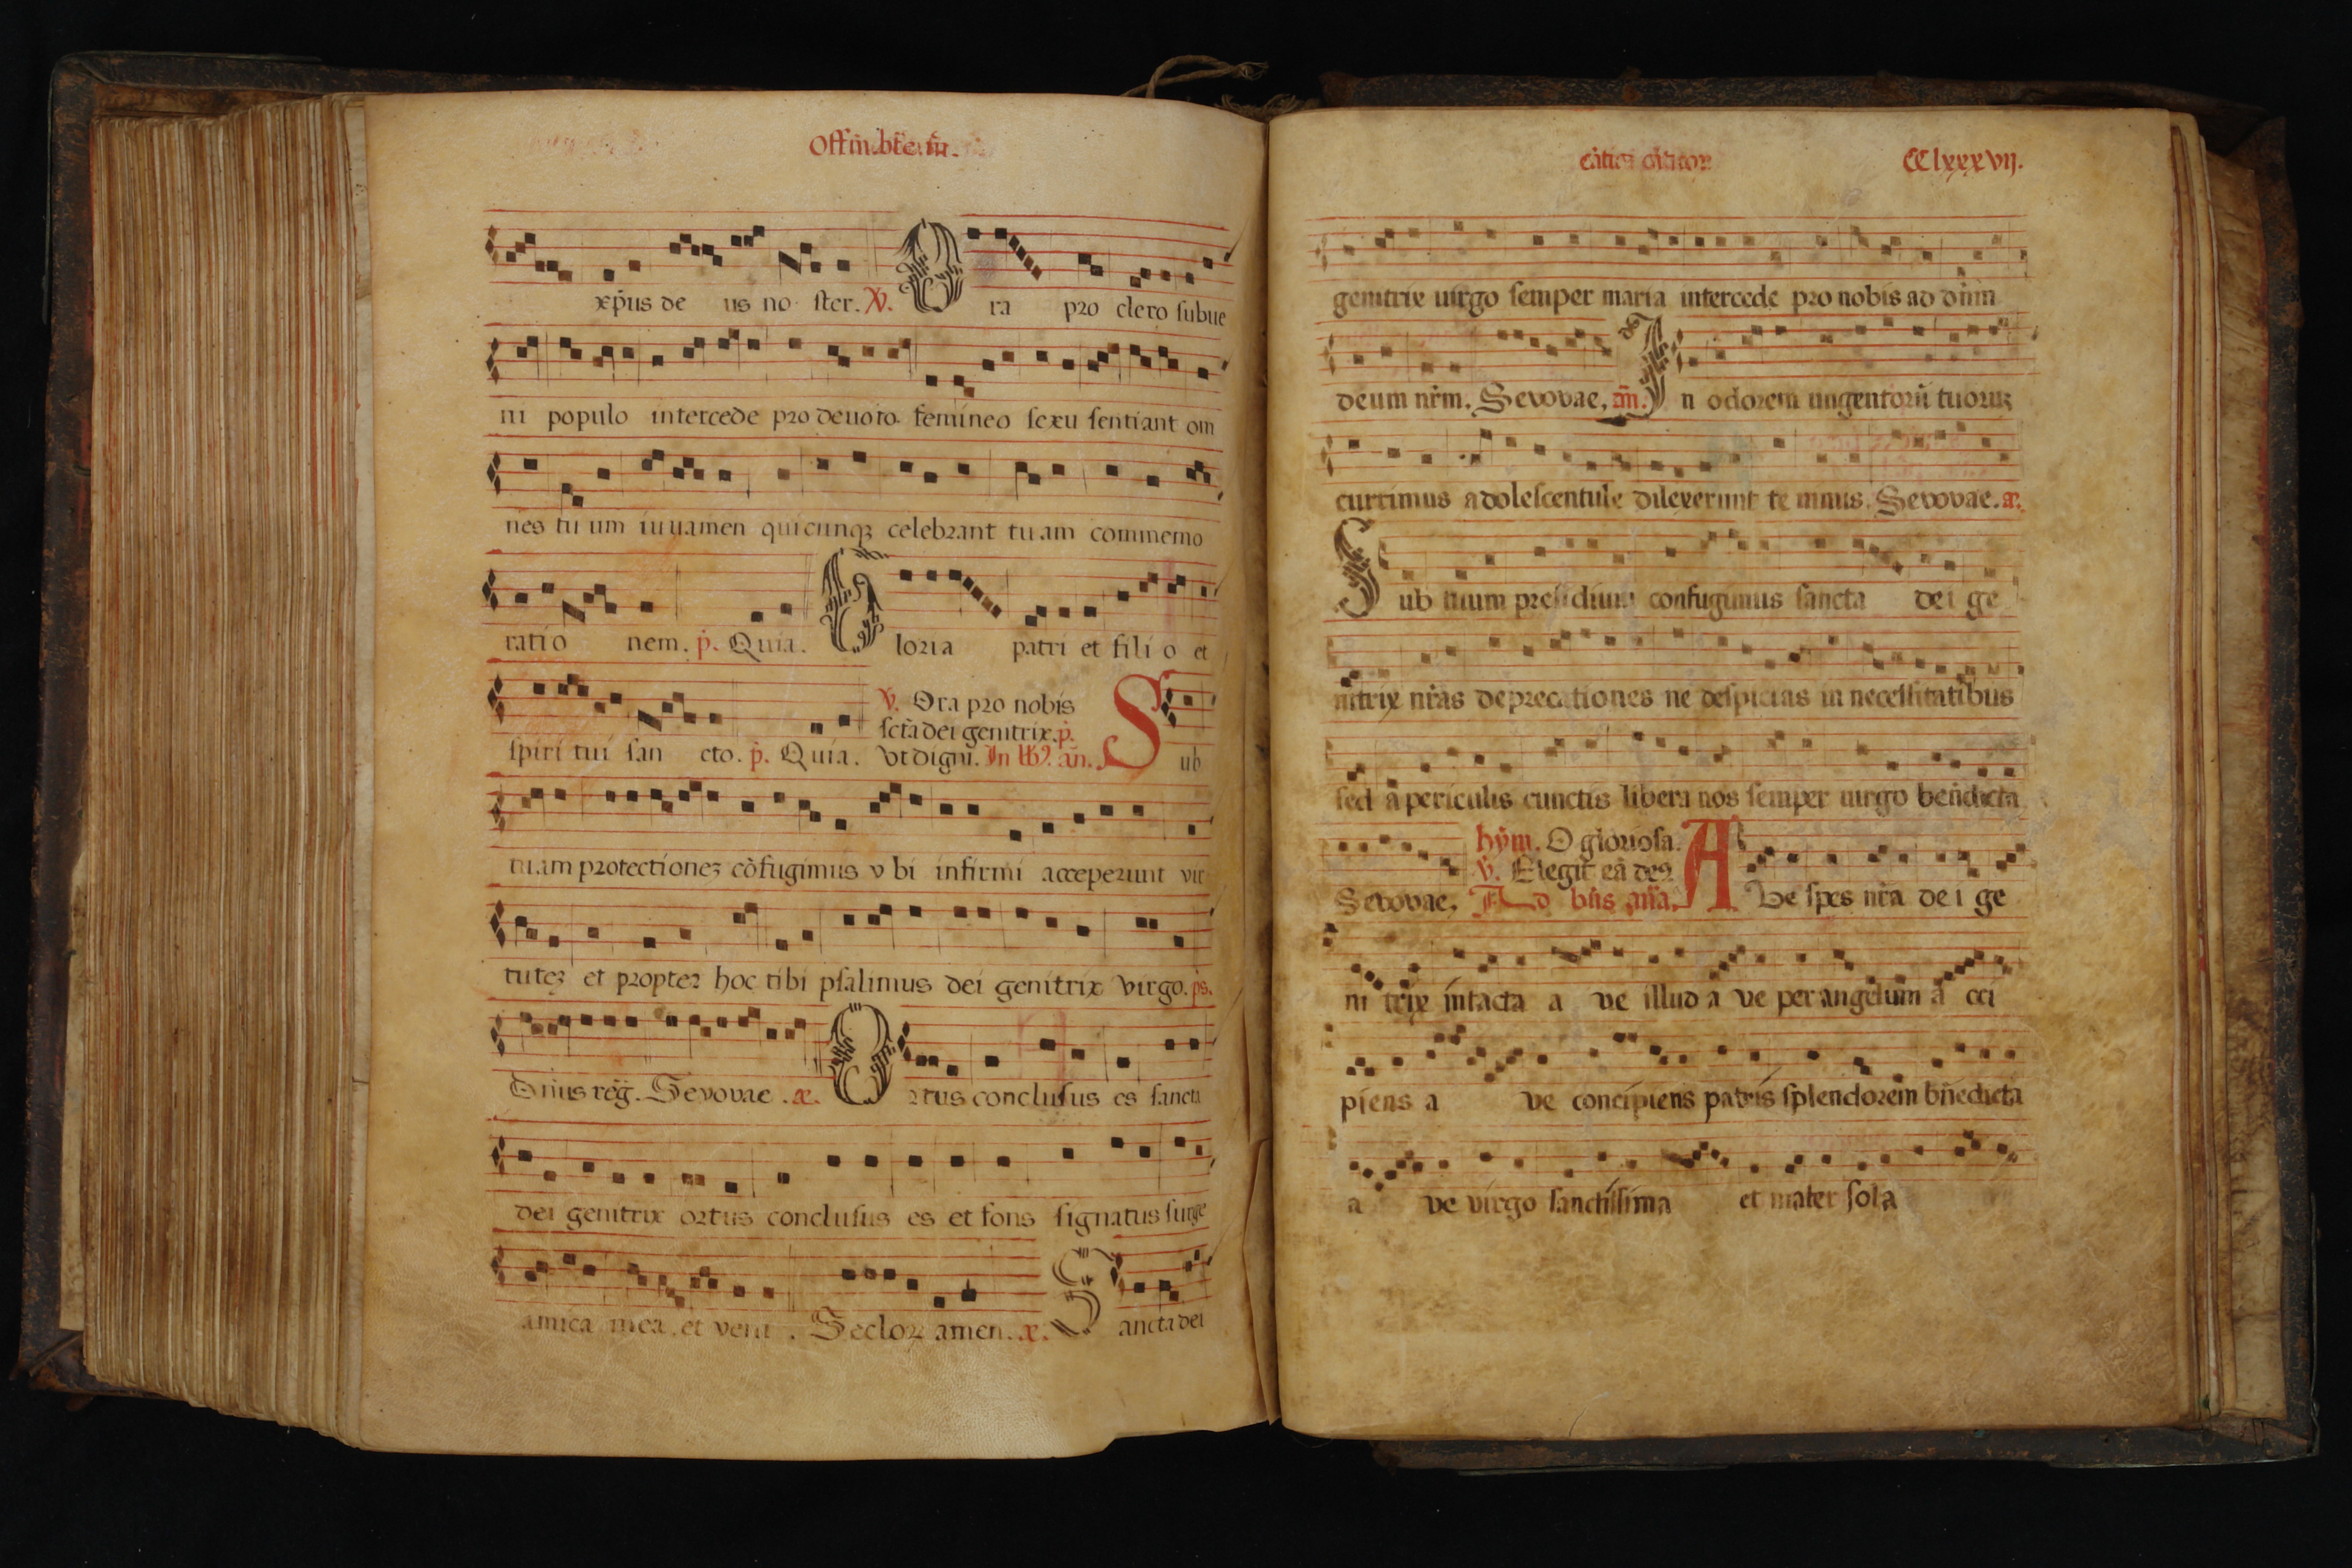 xp̄us de us no ster. V. O ra pro clero subue
ni populo intercede pro deuoto femineo sexu sentiant om
nes tu um iuuamen quicunqꝫ celebrant tu am commemo
ratio nem. p̄. Quia. G loria patri et fili o et
spiri tui san cto. p̄. Quia.
V. Ora pro nobis
sctā dei genitrix. p̄.
Vt digni. In an̄. S ub
tuam protectioneꝫ cōfugimus v bi infirmi acceperunt vir
tuteꝫ et propter hoc tibi psalimus dei genitrix virgo. ps.
Dn̄us reg̃. Sevovae. æ. O rtus conclusus es sancta
dei genitrix ortus conclusus es et fons signatus surge
amica mea, et veni. Secloꝝ amen. æ. S ancta dei
CClxxxvij.
genitrix uirgo semper maria intercede pro nobis ad dn̄m
deum nr̄m. Sevovae, an̄. I n odorem ungentorū tuoruꝫ
currimus adolescentule dilexerunt te nimis. Sevovae. æ.
S ub tuum presidium confugimus sancta dei ge
nitrix nr̄as deprecationes ne despicias in necessitatibus
sed a periculis cunctis libera nos semper uirgo ben̄dicta
Sevovae,
hȳm. O gloriosa.
V. Elegit eā deꝰ.
Ad bn̄s an̄a. A Ve spes nr̄a de i ge
ni trix intacta a ve illud a ve per angelum a cci
piens a ve concipiens patris splendorem bn̄edicta
a ve virgo sanctissima et mater sola